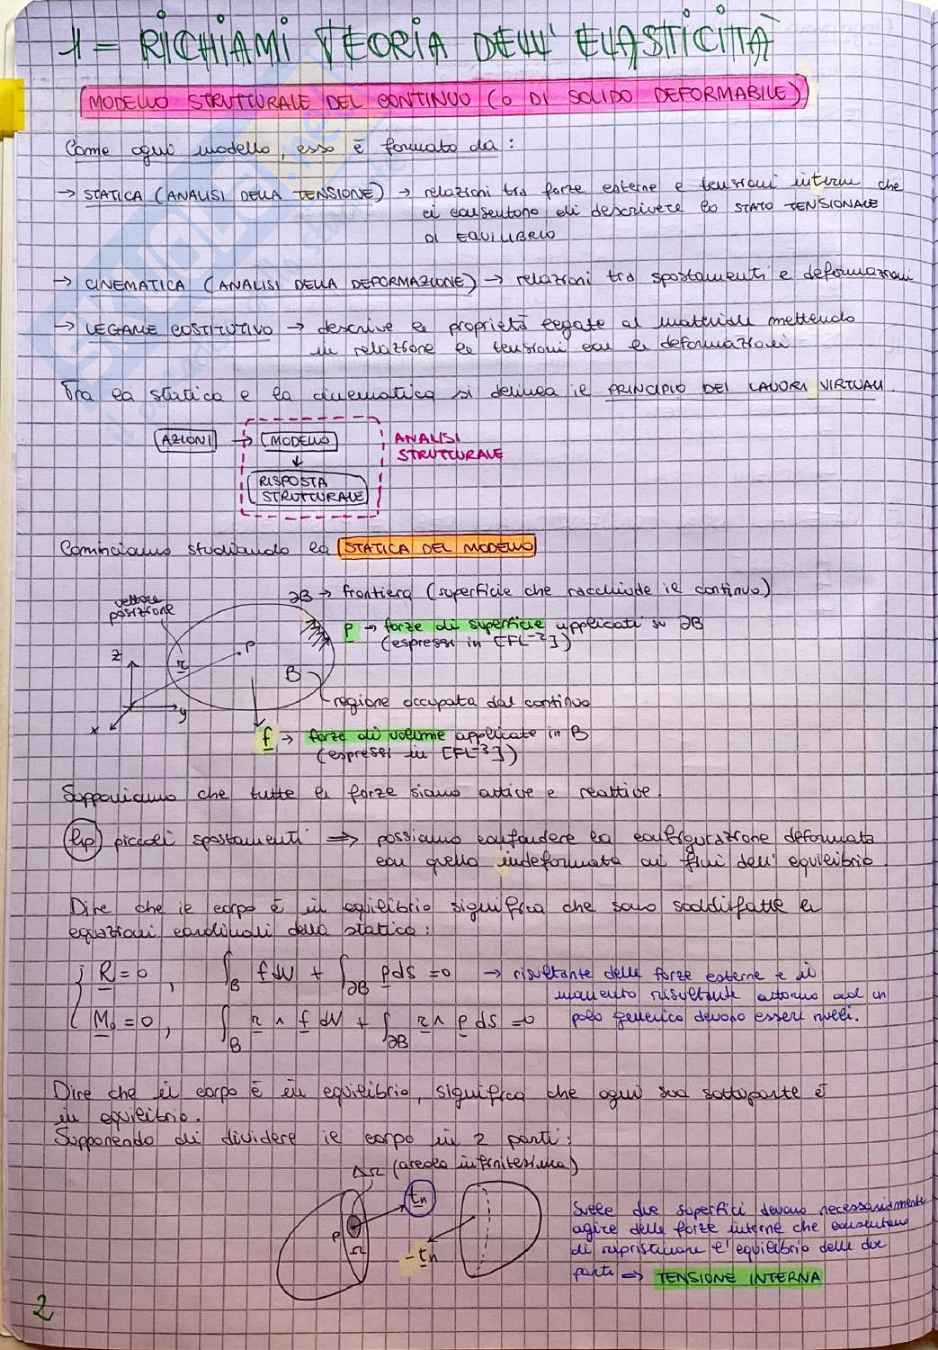 1 = RICHIAMI TEORIA DELL' ELASTICITÀ
MODELLO STRUTTURALE DEL CONTINUO (O DI SOLIDO DEFORMABILE)
Come ogni modello, esso è formato da:
→ STATICA (ANALISI DELLA TENSIONE) → relazioni tra forze esterne e tensioni interne che
ci consentono di descrivere lo STATO TENSIONALE
DI EQUILIBRIO
→ CINEMATICA (ANALISI DELLA DEFORMAZIONE) → relazioni tra spostamenti e deformazioni
→ LEGAME COSTITUTIVO → descrive le proprietà legate al materiale mettendo
in relazione le tensioni con le deformazioni
Tra la statica e la cinematica si delinea il PRINCIPIO DEI LAVORI VIRTUALI
AZIONI → MODELLO
ANALISI
STRUTTURALE
↓
RISPOSTA
STRUTTURALE
Cominciamo studiando la STATICA DEL MODELLO
∂B → frontiera (superficie che racchiude il continuo)
vettore
posizione
p → forze di superficie applicati su ∂B
(espressi in [FL⁻²])
z
r
P
B
regione occupata dal continuo
x
y
f → forze di volume applicate in B
(espressi in [FL⁻³])
Supponiamo che tutte le forze siano attive e reattive.
Hp piccoli spostamenti ⇒ possiamo confondere la configurazione deformata
con quella indeformata ai fini dell' equilibrio
Dire che il corpo è in eqilibrio significa che sono soddisfatte le
equazioni cardinali della statica:
{ R = 0 , ∫_B f dV + ∫_∂B p ds = 0 → risultante delle forze esterne e il
momento risultante attorno ad un
M₀ = 0 , ∫_B r ∧ f dV + ∫_∂B r ∧ p ds = 0 polo generico devono essere nulli.
Dire che il corpo è in equilibrio, significa che ogni sua sottoparte è
in equilibrio.
Supponendo di dividere il corpo in 2 parti:
ΔΩ (areola infinitesima)
tn
P
Ω
-tn
Sulle due superfici devono necessariamente
agire delle forze interne che consentano
di ripristinare l' equilibrio delle due
parti ⇒ TENSIONE INTERNA
2